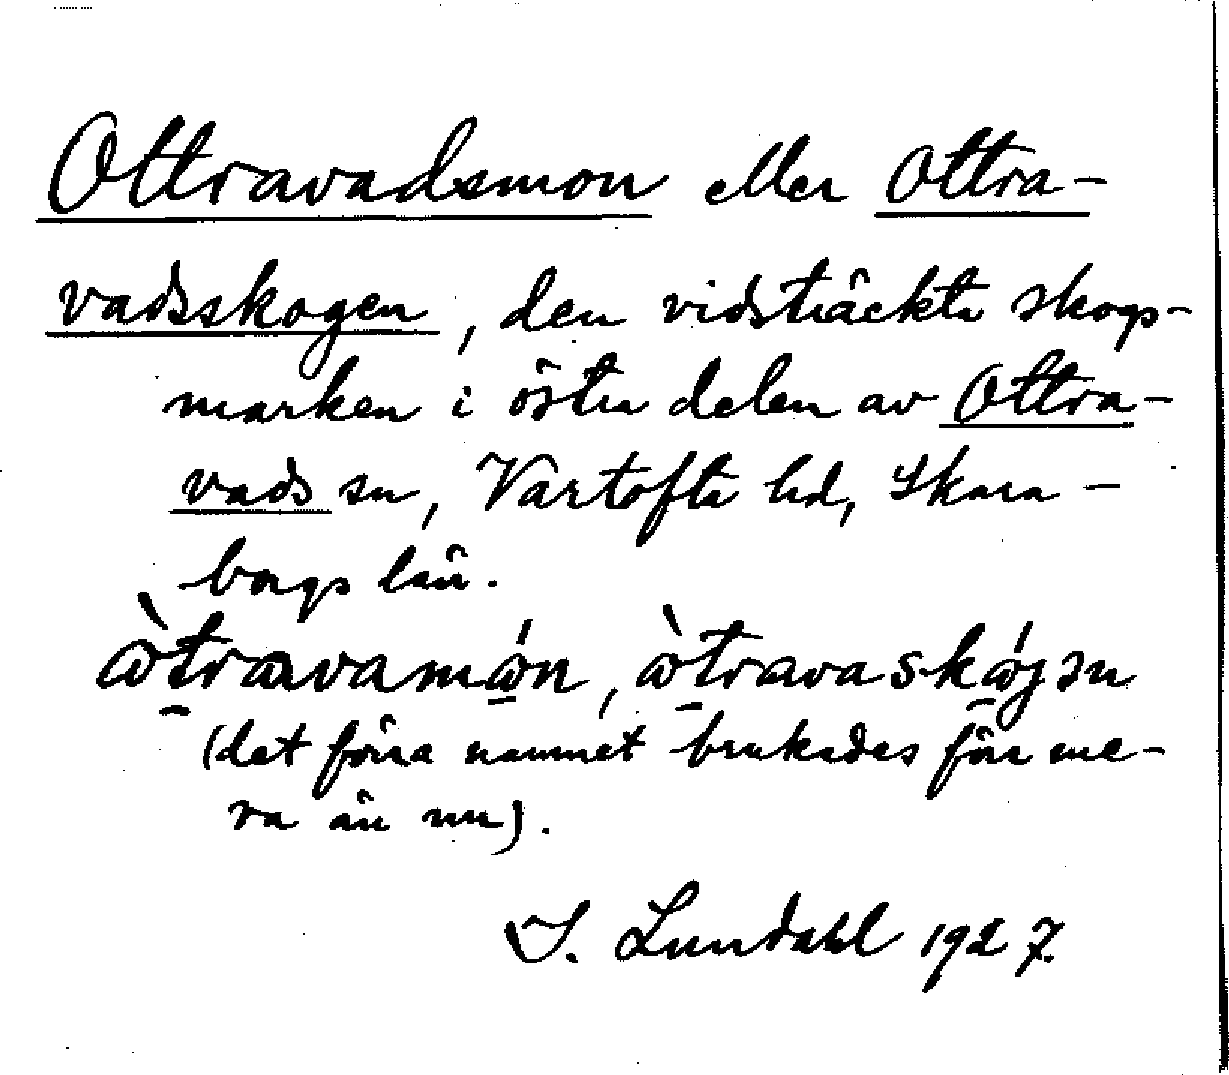 Ottravadsmon eller Ottra-
vadsskogen, den vidsträckta skogs-
marken i östra delen av Ottra-
vads sn, Vartofta hd, Skara-
borgs län.
ꞷ̀travamꞷ́n, ꞷ̀travaskꞷ́gən
(det förra namnet brukades förr me-
ra än nu).
I. Lundahl 1927.